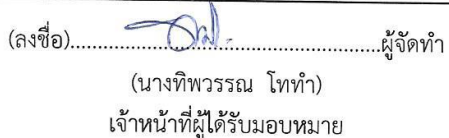 (ลงชื่อ)................................................ผู้จัดทำ
(นางทิพวรรณ โททำ)
เจ้าหน้าที่ผู้ได้รับมอบหมาย